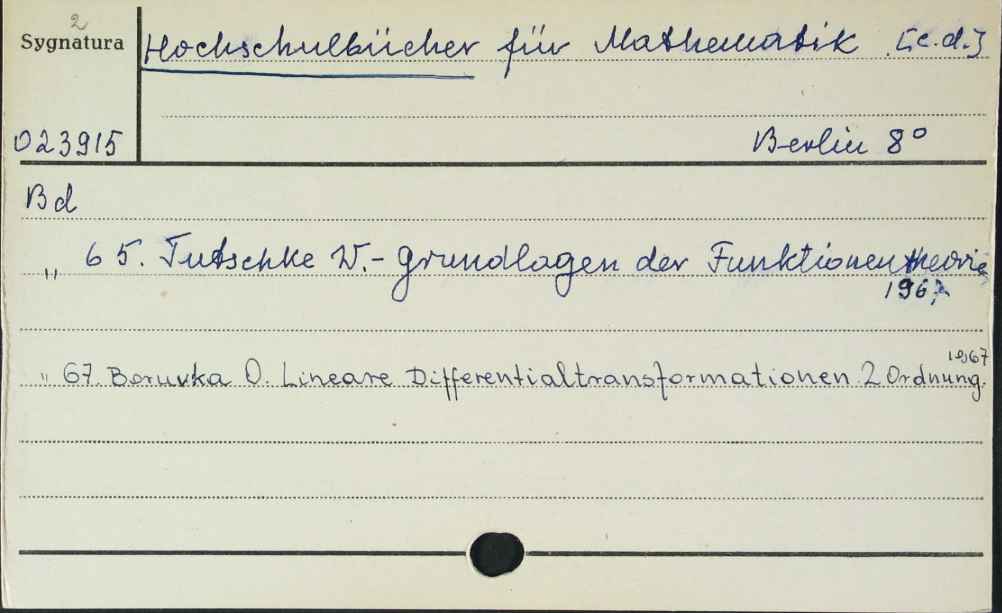 2
Sygnatura Hochschulbücher für Mathematik [c.d.]
023915 Berlin 8°
Bd
" 65. Tutschke W. - Grundlagen der Funktionentheorie
1967
" 67. Boruvka O. Lineare Differentialtransformationen 2 Ordnung. 1967